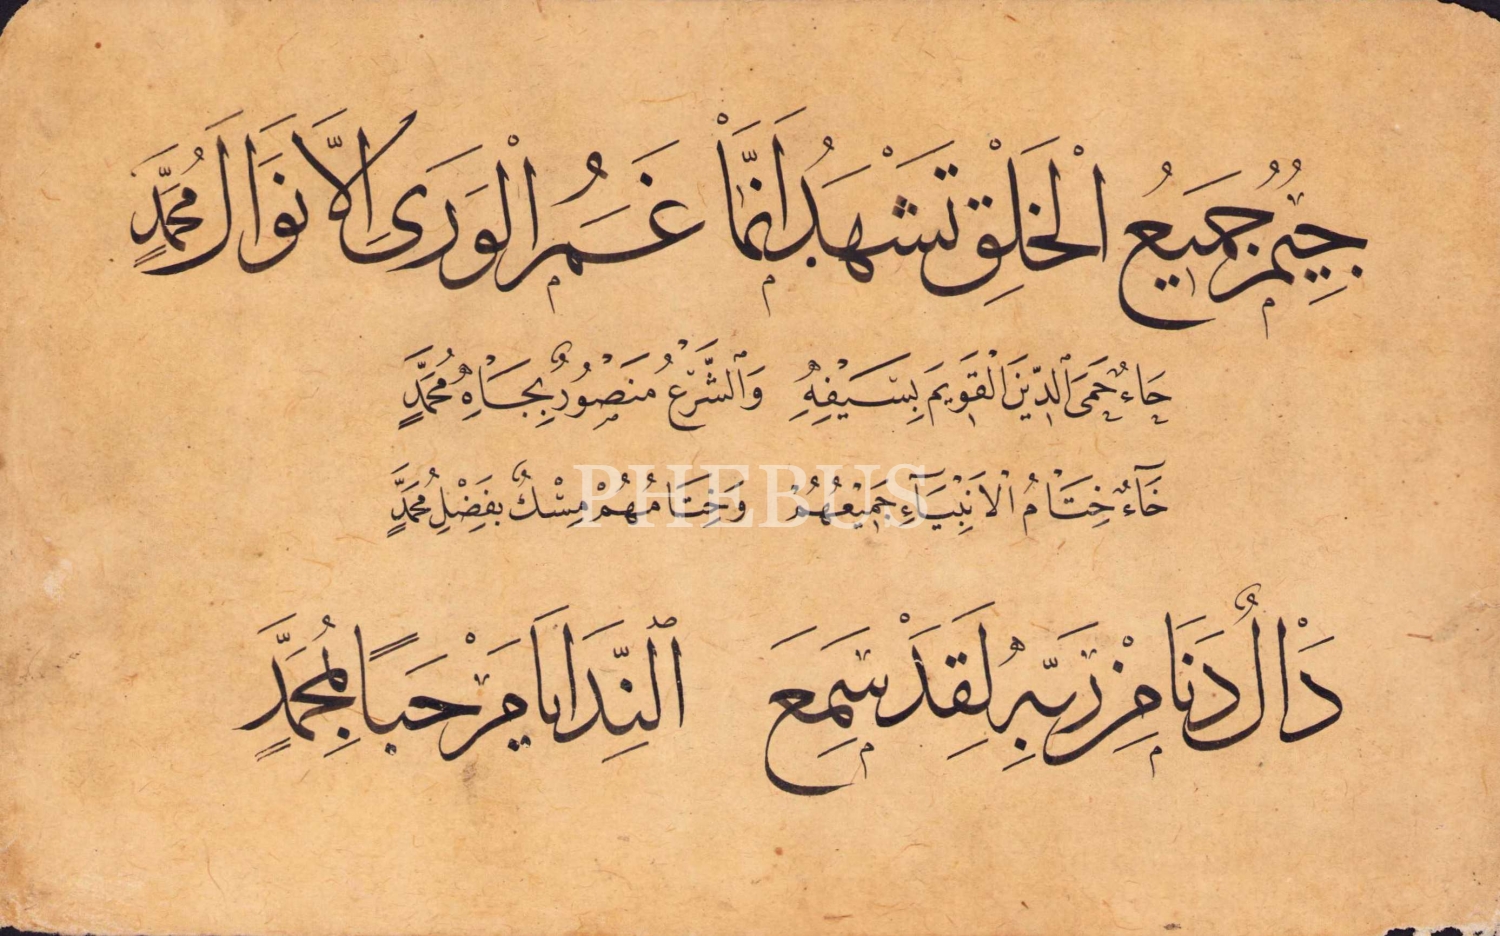 جِيْمٌ جَمِيعُ الْخَلْقِ تَشْهَدُ اَنَّمَا غَمُرَ الْوَرَى اِلَّا نَوَالَ مُحَمَّدٍ
حَاءٌ حَمَى الدِّينَ الْقَوِيمَ بِسَيْفِهِ وَالشَّرْعُ مَنْصُورٌ بِجَاهِ مُحَمَّدٍ
خَآءٌ خِتَامُ الْاَنْبِيَآءِ جَمِيْعُهُمْ وَخِتَامُهُمْ مِسْكٌ بِفَضْلِ مُحَمَّدٍ
دَالٌ دَنَا مِنْ رَبِّهِ لَقَدْ سَمِعَ النِّدَا يَا مَرْحَبًا بِمُحَمَّدٍ
PHEBUS